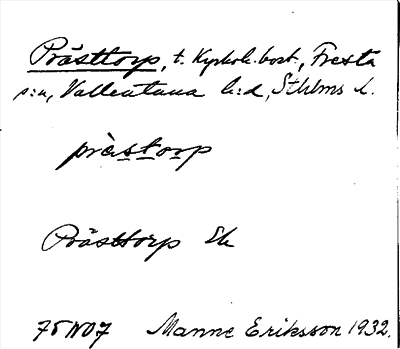 Prästtorp, t. Kyrkoh.bost., Fresta
s:n, Vallentuna h:d, Sthlms l.
prästorp
Prästtorp Ek
75 NO7 Manne Eriksson 1932.